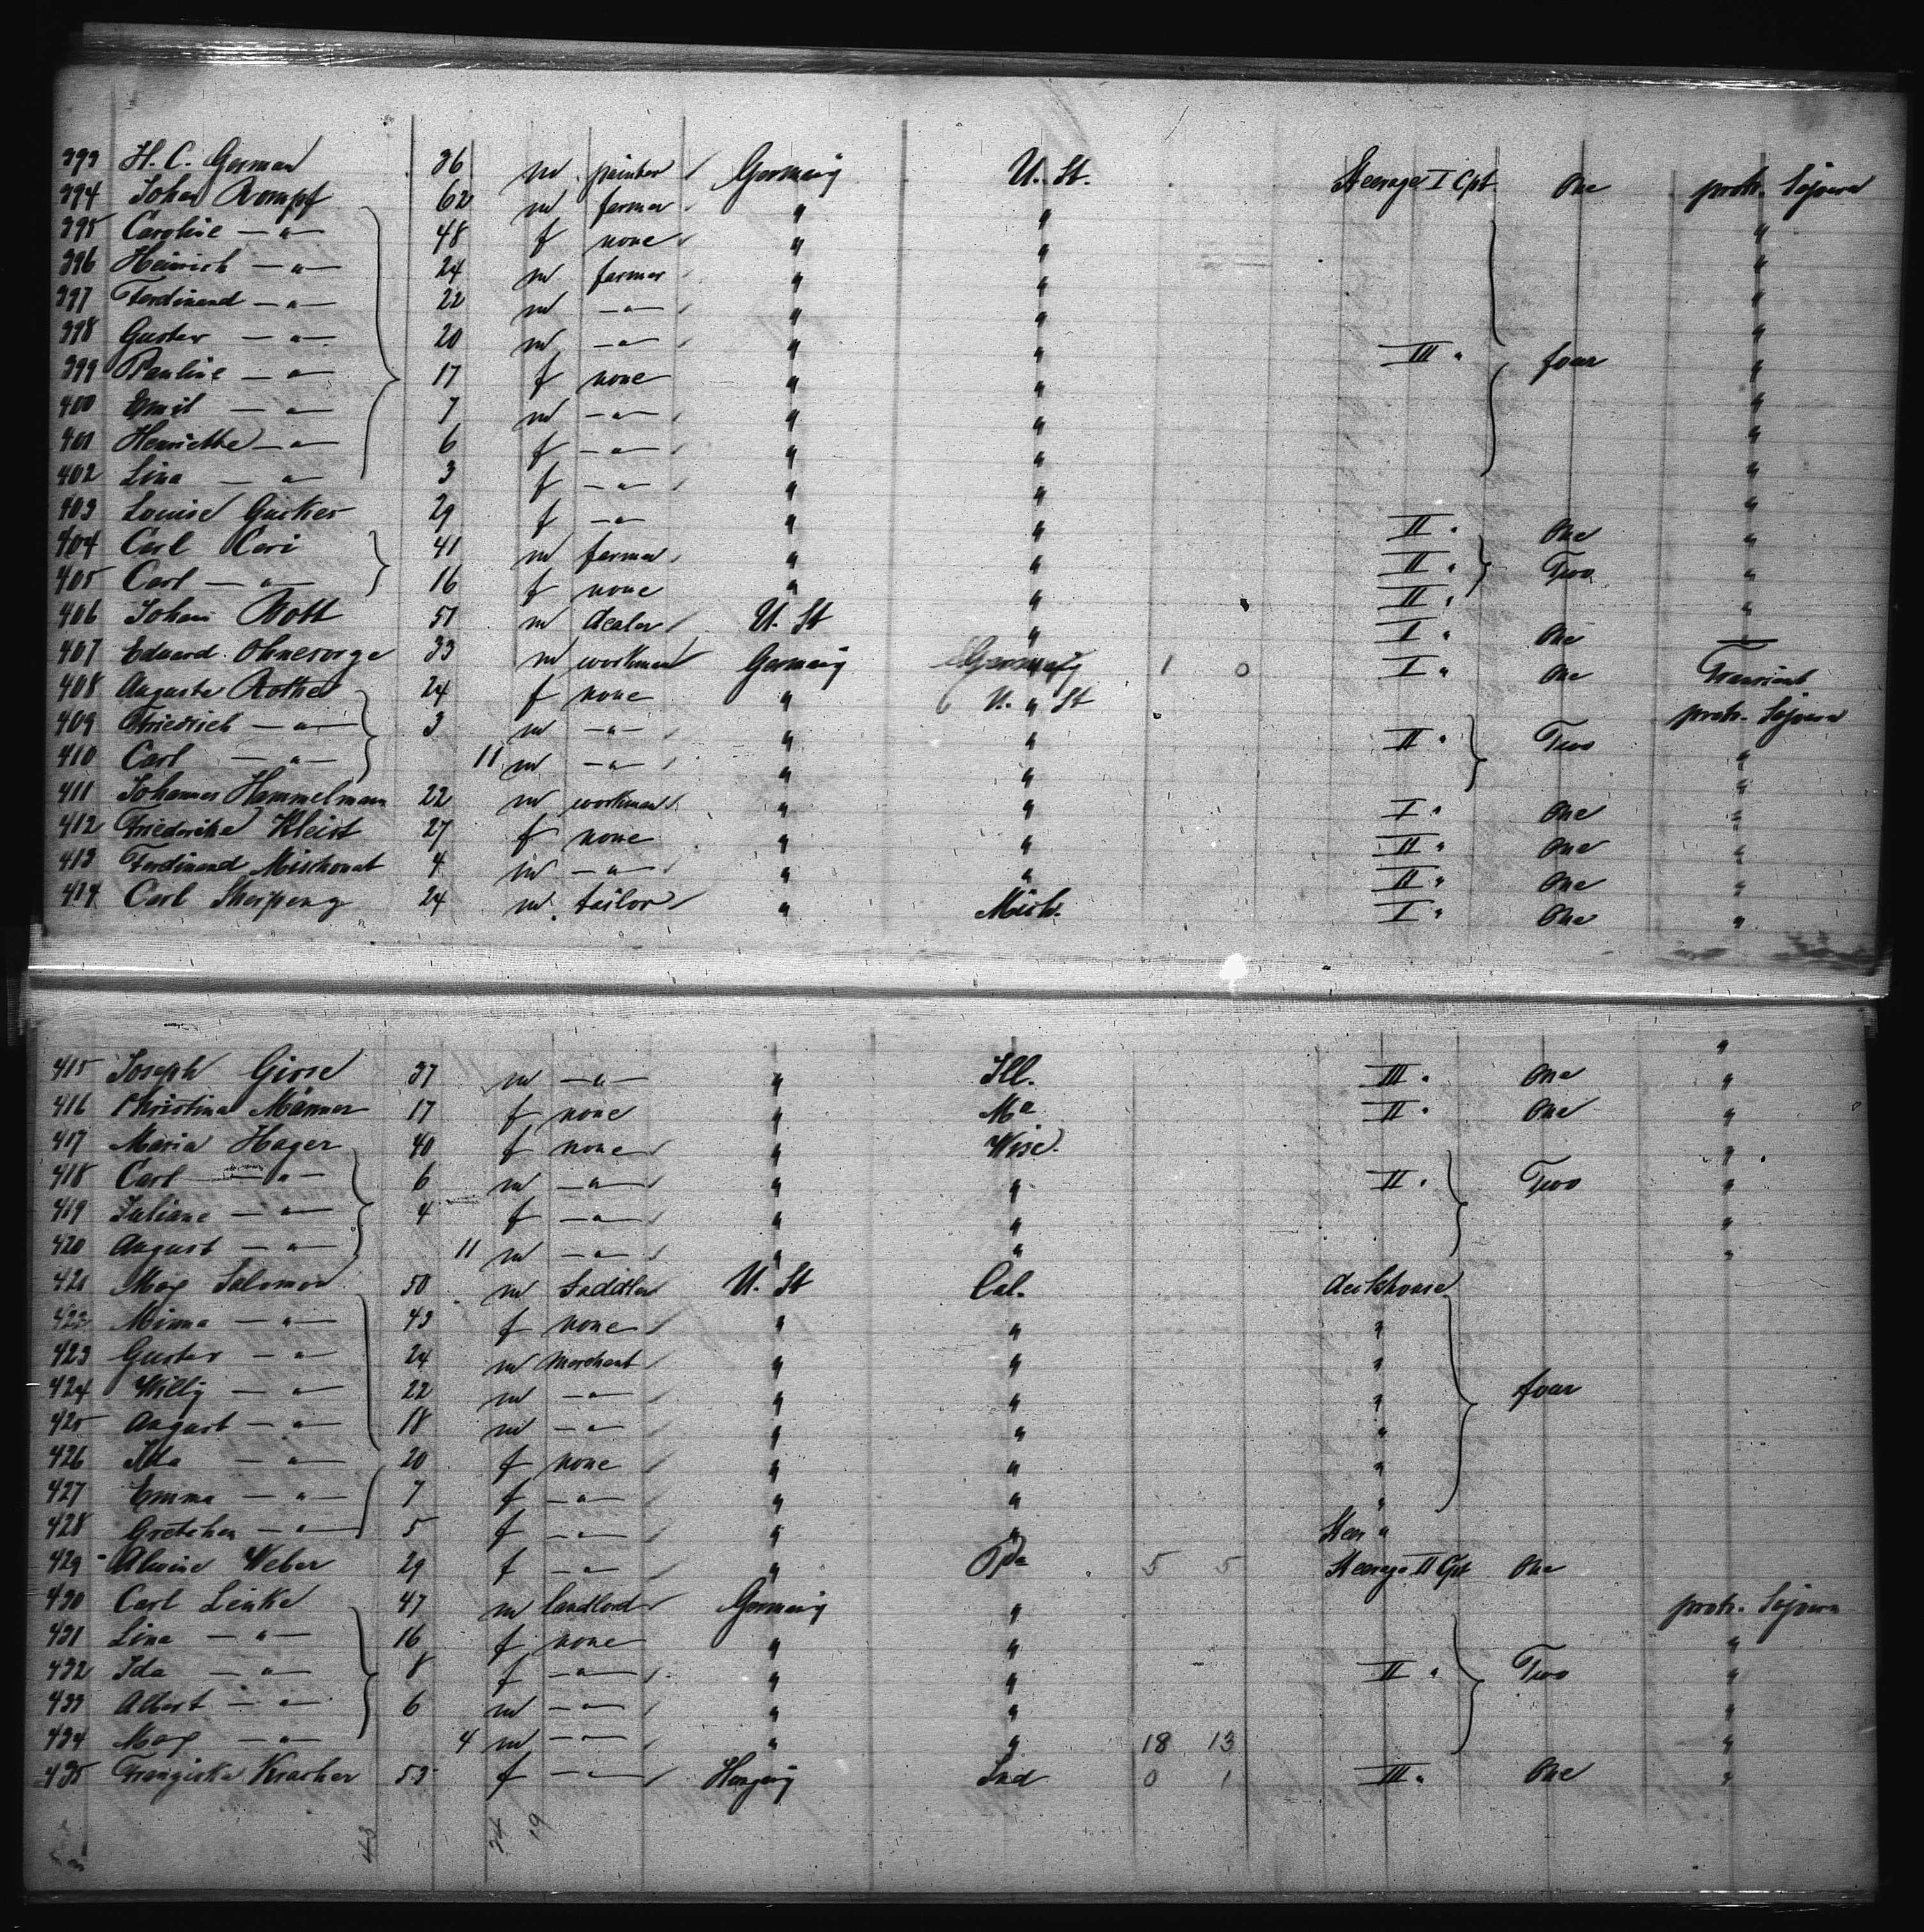 393 H. C. German 36 m painter Germany U. St. Steerage I Cpt One protr. Sojourn
394 Johan Rompf 62 m farmer " " "
395 Caroline —"— 48 f none " " "
396 Heinrich —"— 24 m farmer " " "
397 Ferdinand —"— 22 m —"— " " "
398 Gustav —"— 20 m —"— " " III " four "
399 Pauline —"— 17 f none " " "
400 Emil —"— 7 m —"— " " "
401 Henriette —"— 6 f —"— " " "
402 Lina —"— 3 f —"— " " "
403 Louise Gurkes 29 f —"— " " II " One "
404 Carl Cari 41 m farmer " " II " Two "
405 Carl —"— 16 f none " " II " "
406 Johan Rott 51 m dealer U. St " I " One —
407 Eduard Ohnesorge 33 m workman Germany Germany 1 0 I " One Transient
408 Auguste Rother 24 f none " U. St protr. Sojourn
409 Friedrich —"— 3 m —"— " " II " Two "
410 Carl —"— 11 m —"— " " "
411 Johannes Hammelmann 22 m workman " " I " One "
412 Friederike Kleist 27 f none " " II " One "
413 Ferdinand Mischonat 4 m —"— " " II " One "
414 Carl Sherpeng 24 m tailor " Mich. I " One "
415 Joseph Girse 37 m —"— " Ill. III " One "
416 Christina Männer 17 f none " II " One "
417 Maria Hager 40 f none " Wisc. "
418 Carl —"— 6 m —"— " " II " Two "
419 Juliane —"— 4 f —"— " " "
420 August —"— 11 m —"— " " "
421 Max Salomon 50 m Saddler U. St Cal. deckhouse
422 Minna —"— 43 f none " " "
423 Gustav —"— 24 m Merchant " " "
424 Willy —"— 22 m —"— " " " four
425 August —"— 18 m —"— " " "
426 Ida —"— 20 f none " " "
427 Emma —"— 7 f —"— " " "
428 Gretchen —"— 5 f —"— " " "
429 Alwine Weber 29 f —"— " Pa 5 5 Steerage II Cpt One
430 Carl Linke 47 m landlord Germany " protr. Sojourn
431 Lina —"— 16 f none " " "
432 Ida —"— 8 f —"— " " II " Two "
433 Albert —"— 6 m —"— " " "
434 Max —"— 4 m —"— " " 18 13 "
435 Franziska Kracher 53 f —"— Hungary Ind 0 1 III " One "
43 24 19